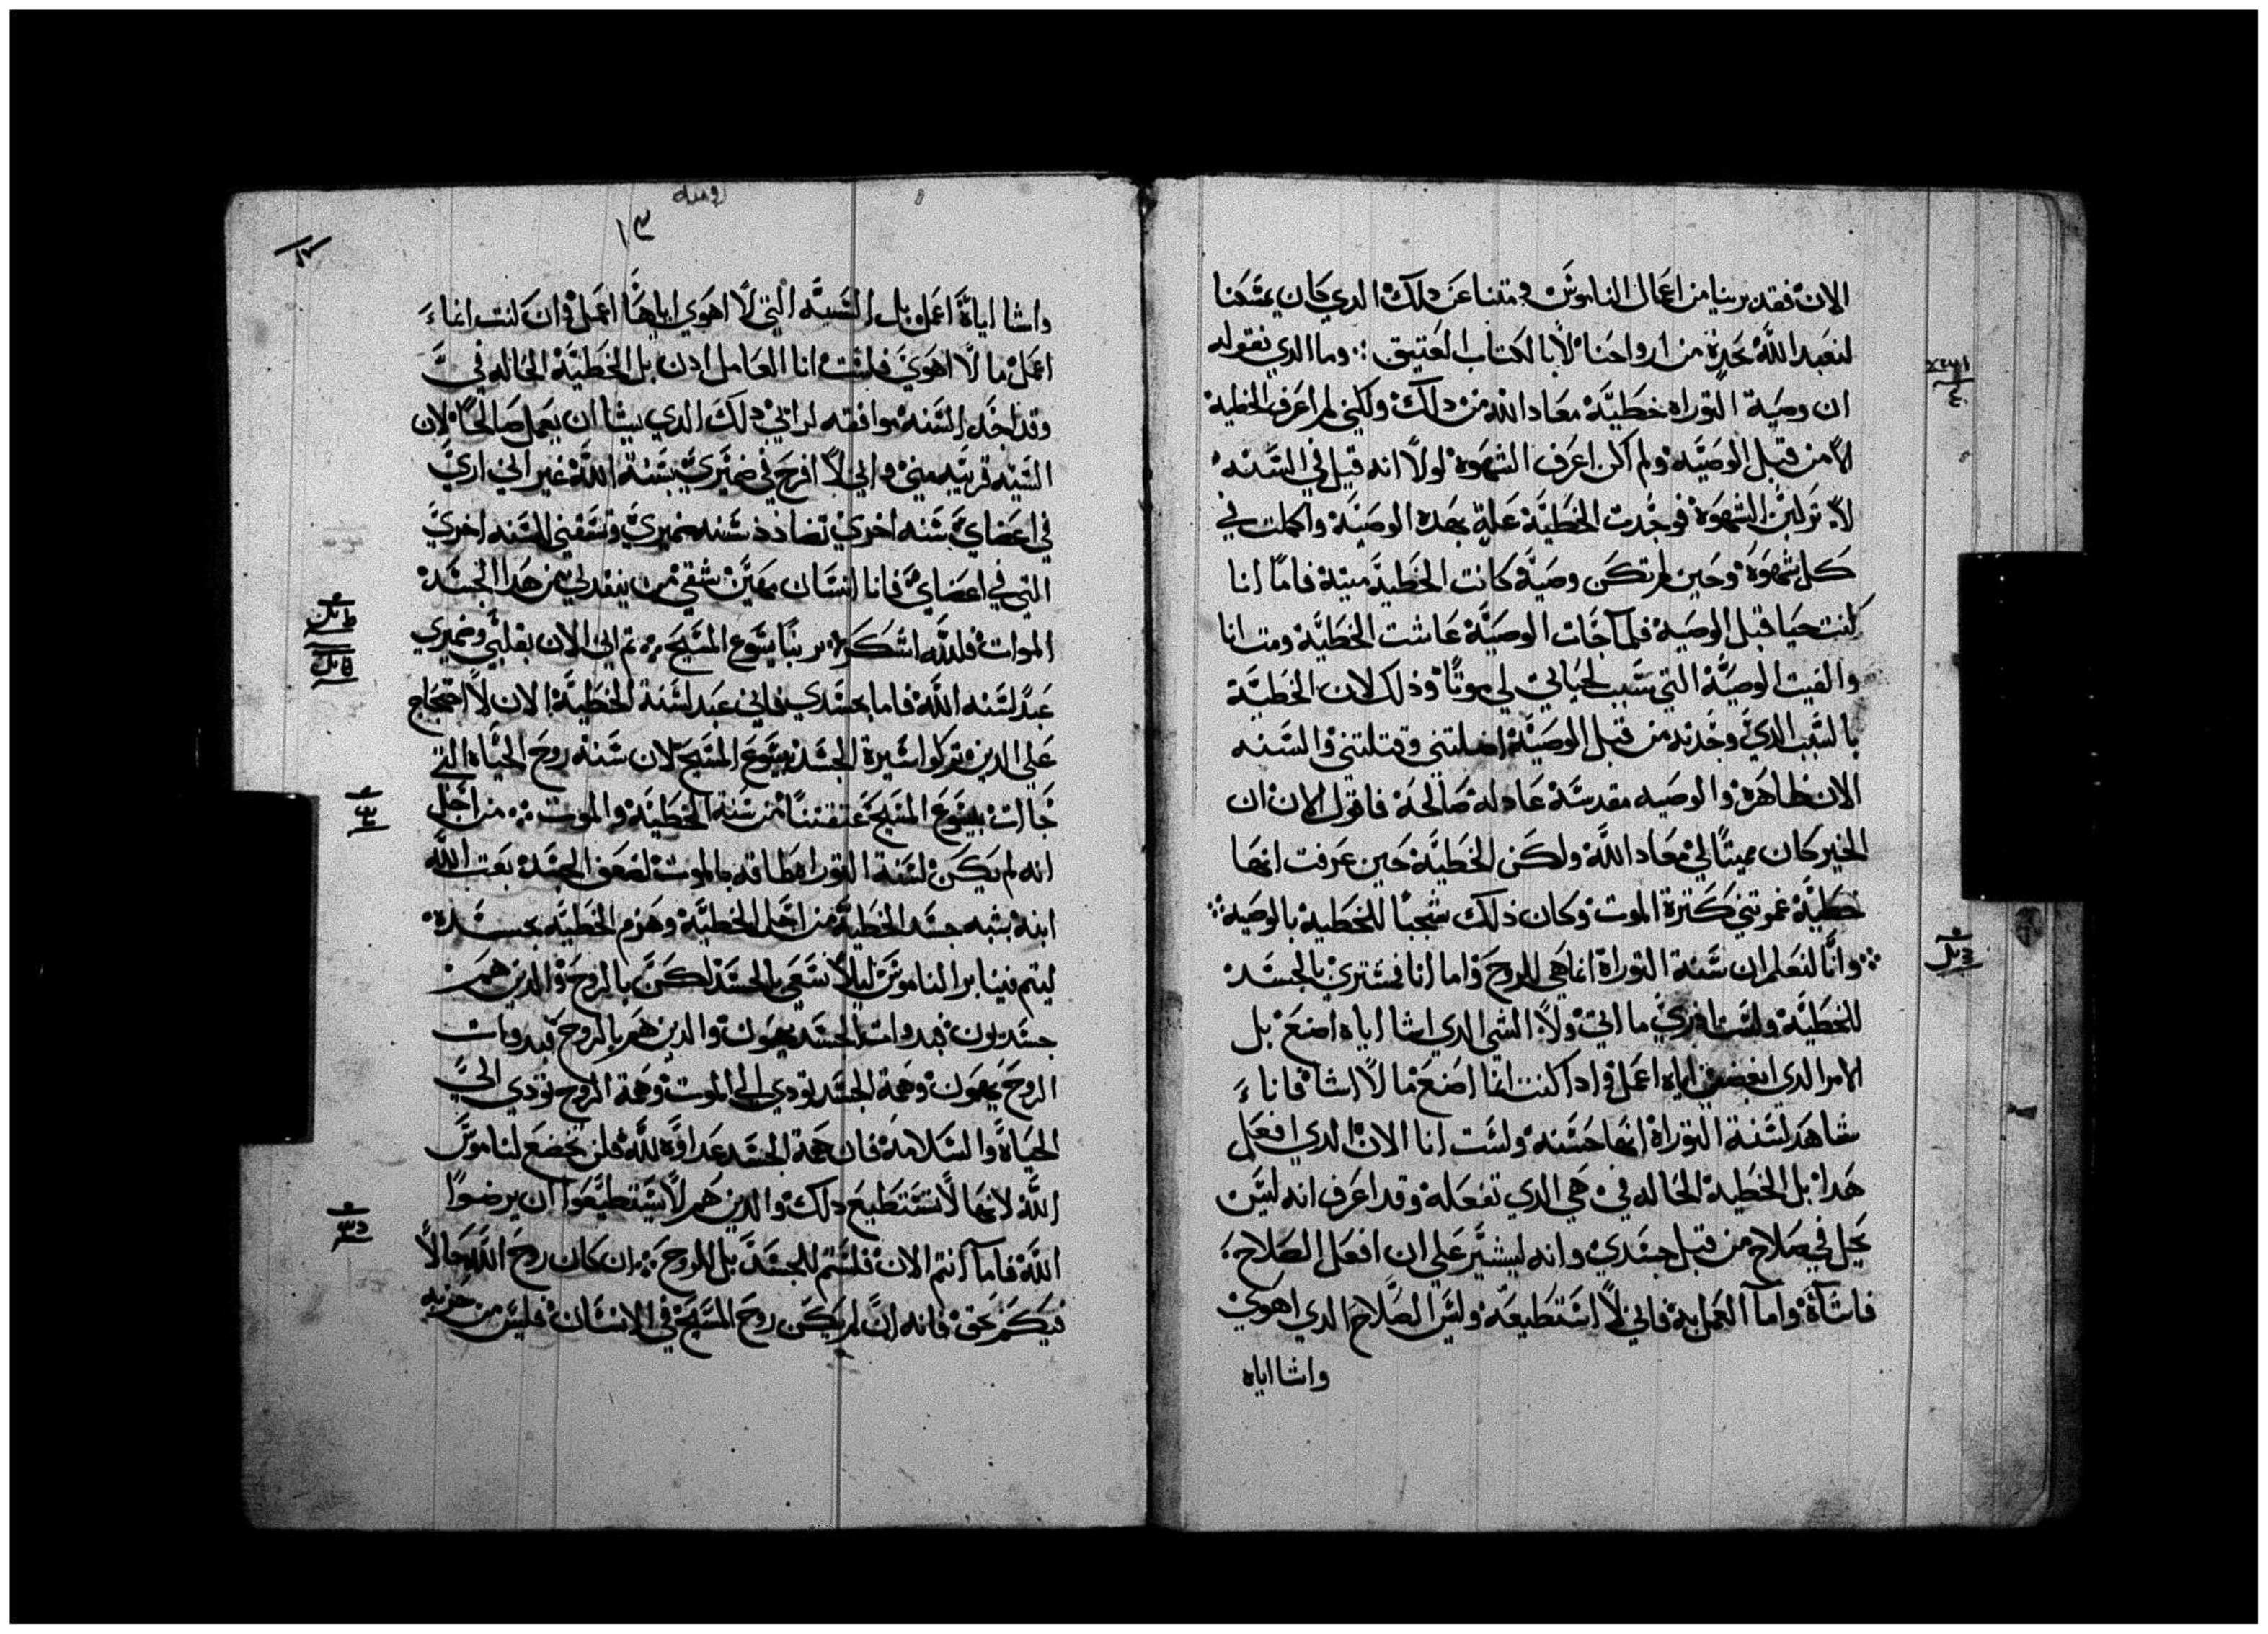 الان فقد برينا من اعمال الناموس ومتنا عن دلك الدي كان يمسكنا
لنعبد الله بجدة من ارواحنا لا بالكتاب العتيق ❖ وما الدي نقوله
ان وصية التوراه خطيّة معاد الله من دلك ولكني لم اعرف الخطية
الا من قبل الوصيّه ولم اكن اعرف الشهوة لولا انه قيل في السّنه
لا الشهوة فوجدت الخطيّة علة بهده الوصيّة واكملت في
كل شهوة وحين لم تكن وصيّة كانت الخطية ميتة فاما انا
كنت حيا قبل الوصية فلما جات الوصيّة عاشت الخطيّة ومت انا
والفيت الوصيّة التي سبب لحياتي لي موتا وذلك لان الخطيّة
بالسّبب الدي وجدته من قبل الوصيّة اضلتني وقتلتني والسّنه
الان طاهرة والوصيه مقدسّة عادلة صالحة فاقول الان ان
الخير كان مميتا لي معاد الله ولكن الخطيّة حين عرفت انها
خطيّة كترة الموت وكان ذلك شجبا للخطية بالوصية ❖
❖ وانّا لنعلم ان سّنة التوراة انما هي للروح واما انا فمشتري بالجسد
للخطيّة ولست ادري ما اتي ولا الشي الدي اشا اياه اصنع بل
الامر الدي ابغض اياه اعمل وادا كنت انا اصنع ما لا اشا فانا
شاهد لسّنة التوراة انها حسّنه ولست انا الان الدي افعل
هدا بل الخطية الحاله في هي الدي تفعله وقد اعرف انه ليس
يحل في صلاح من قبل جسدي وانه ليسّير علي ان افعل الصلاح
فاشاة واما العمل به فاني لا استطيعه وليس الصلاح الدي اهوي
واشا اياه
روميه
١٣
واشا اياة اعمل بل السيّه التي لا اهوي اياها اعمل وان كنت انما
اعمل ما لا اهوي فلست انا العامل ادن بل الخطيّة الحاله فيّ
وقد اجد السّنة موافقه لراتي دلك الدي يشا ان يعمل صالحا لان
السّيه قريبه مني واني لا افرح في ضميري بسّنة الله غير اني اري
في اعضاي سّنه اخري تضادد سّنه ضميري وتسبيني للسّنه اخري
التي في اعضاي فانا انسّان مهين شقي من ينقدني من هدا الجسد
الموات فلله اشكر بربنا يسوع المسيح ❖ تم اني الان بقلبي وضميري
عبد لسّنه الله فاما بجسدي فاني عبد لسّنة الخطيّة الان لا احتجاج
علي الدين تركوا سّيرة الجسد بيسّوع المسيح لان سّنة روح الحياة التي
جات بيسوع المسيح عتقتنا من سّنة الخطيّة والموت ❖ من اجل
انه لم يكن لسّنة التوراه طاقه بالموت لضعف الجسد بعت الله
ابنه بشبه جسد الخطية من اجل الخطيّة وهزم الخطيّه بجسده
ليتم فينا بر الناموس ليلا نسعي بالجسد لكن بالروح والدين هم
جسديون فبدوات الجسد يهمون والدين هم بالروح فبدوات
الروح يهمون وهمة الجسد تودي الي الموت وهمة الروح تودي الي
الحياة والسّلامة فان همة الجسد عداوه لله فلن تخضع لناموس
الله لانها لا تستطيع دلك والدين هم لا يستطيعوا ان يرضوا
الله فاما انتم الان فلستم للجسد بل للروح ❖ ان كان روح الله حالا
فيكم بحق فانه ان لم يكن روح المسيح في الانسّان فليس من حزبه